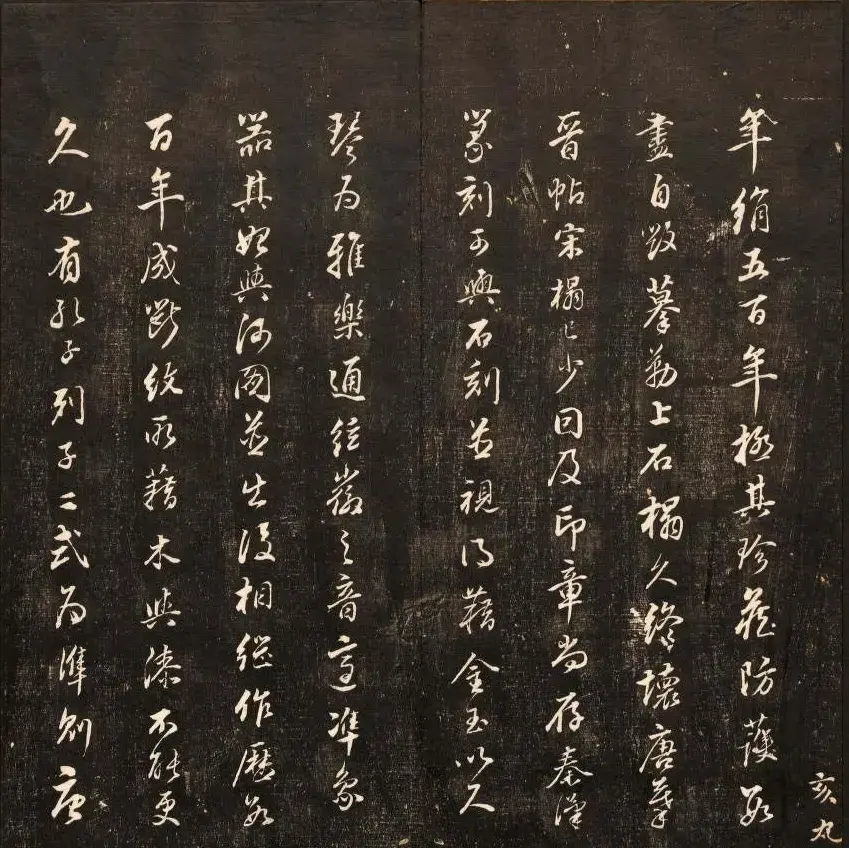 年絹五百年極其珍藏防護數
盡自毀摹勒上石榻久終壞唐摹
晉帖宋榻已少因及印章尚存秦漢
篆刻可與石刻並視得藉金玉以久
琴為雅樂通之音準象
器其始與河圖並出後相繼作歷數
百年成斷紋所藉木與漆不能更
久也有孔子列子二式為準則唐
亥九